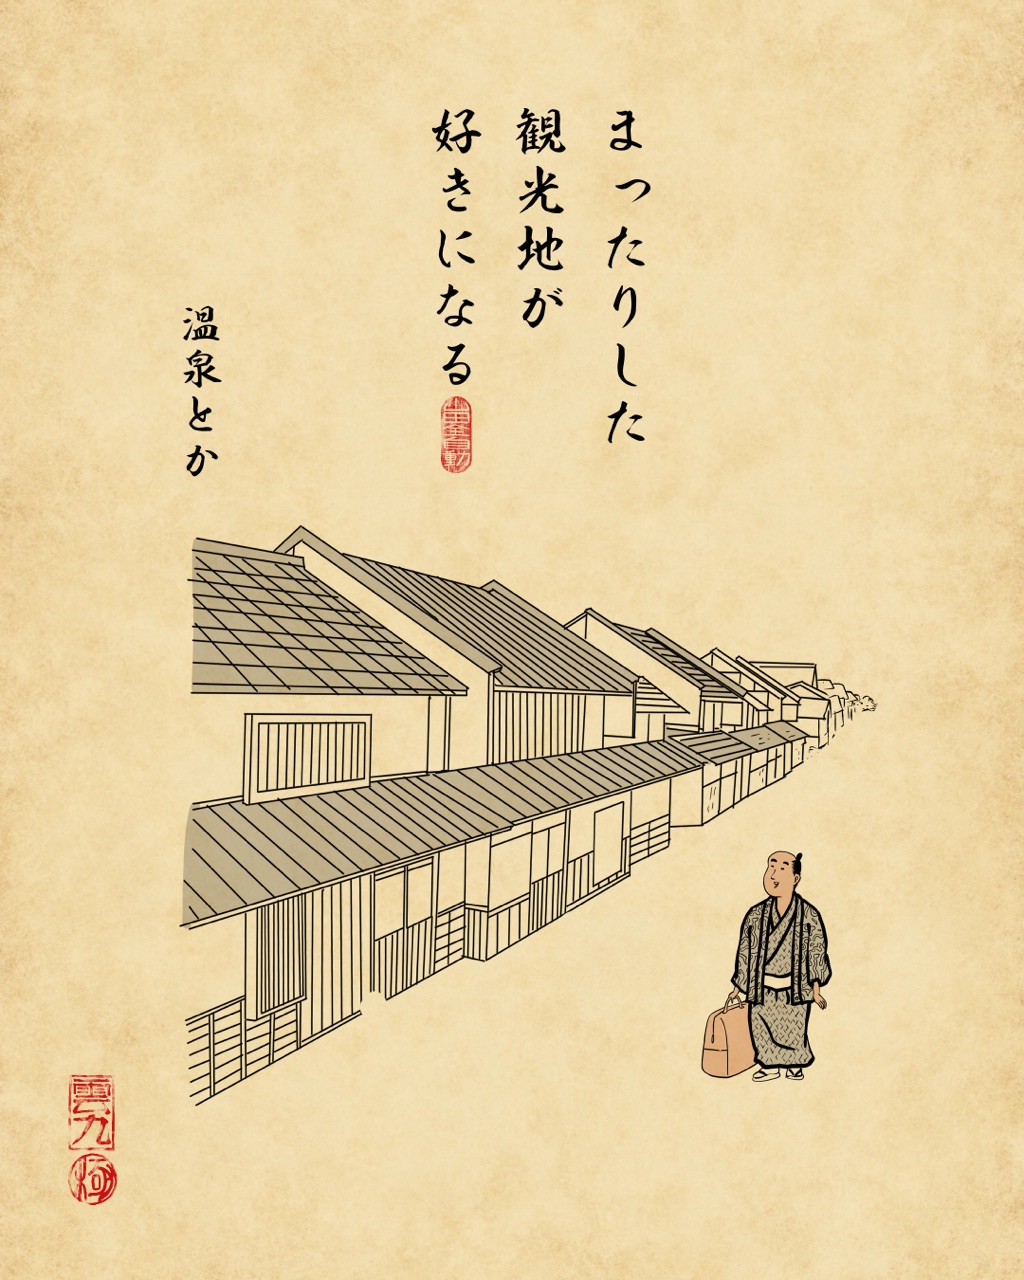 まったりした
観光地が
好きになる
温泉とか
雲九
極